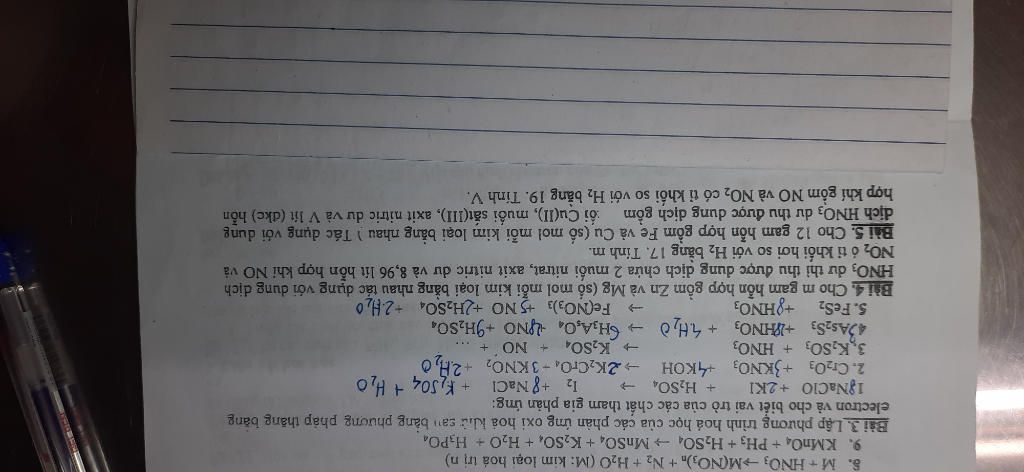 8. M + HNO₃ → M(NO₃)ₙ + N₂ + H₂O (M: kim loại hoá trị n)
9. KMnO₄ + PH₃ + H₂SO₄ → MnSO₄ + K₂SO₄ + H₂O + H₃PO₄
Bài 3. Lập phương trình hoá học của các phản ứng oxi hoá khử sau bằng phương pháp thăng bằng
electron và cho biết vai trò của các chất tham gia phản ứng:
1. 8NaClO + 2KI + H₂SO₄ → I₂ + 8NaCl + K₂SO₄ + H₂O
2. Cr₂O₃ + 3KNO₃ + 4KOH → 2K₂CrO₄ + 3KNO₂ + 2H₂O
3. K₂SO₃ + HNO₃ → K₂SO₄ + NO + ...
4. As₂S₃ + 28HNO₃ + 4H₂O → 6H₃AsO₄ + 28NO + 9H₂SO₄
5. FeS₂ + 8HNO₃ → Fe(NO₃)₃ + 5NO + 2H₂SO₄ + 2H₂O
Bài 4. Cho m gam hỗn hợp gồm Zn và Mg (số mol mỗi kim loại bằng nhau tác dụng với dung dịch
HNO₃ dư thì thu được dung dịch chứa 2 muối nitrat, axit nitric dư và 8,96 lít hỗn hợp khí NO và
NO₂ ó tỉ khối hơi so với H₂ bằng 17. Tính m.
Bài 5. Cho 12 gam hỗn hợp gồm Fe và Cu (số mol mỗi kim loại bằng nhau ) Tác dụng với dung
dịch HNO₃ dư thu được dung dịch gồm ối Cu(II), muối sắt(III), axit nitric dư và V lít (đkc) hỗn
hợp khí gồm NO và NO₂ có tỉ khối so với H₂ bằng 19. Tính V.